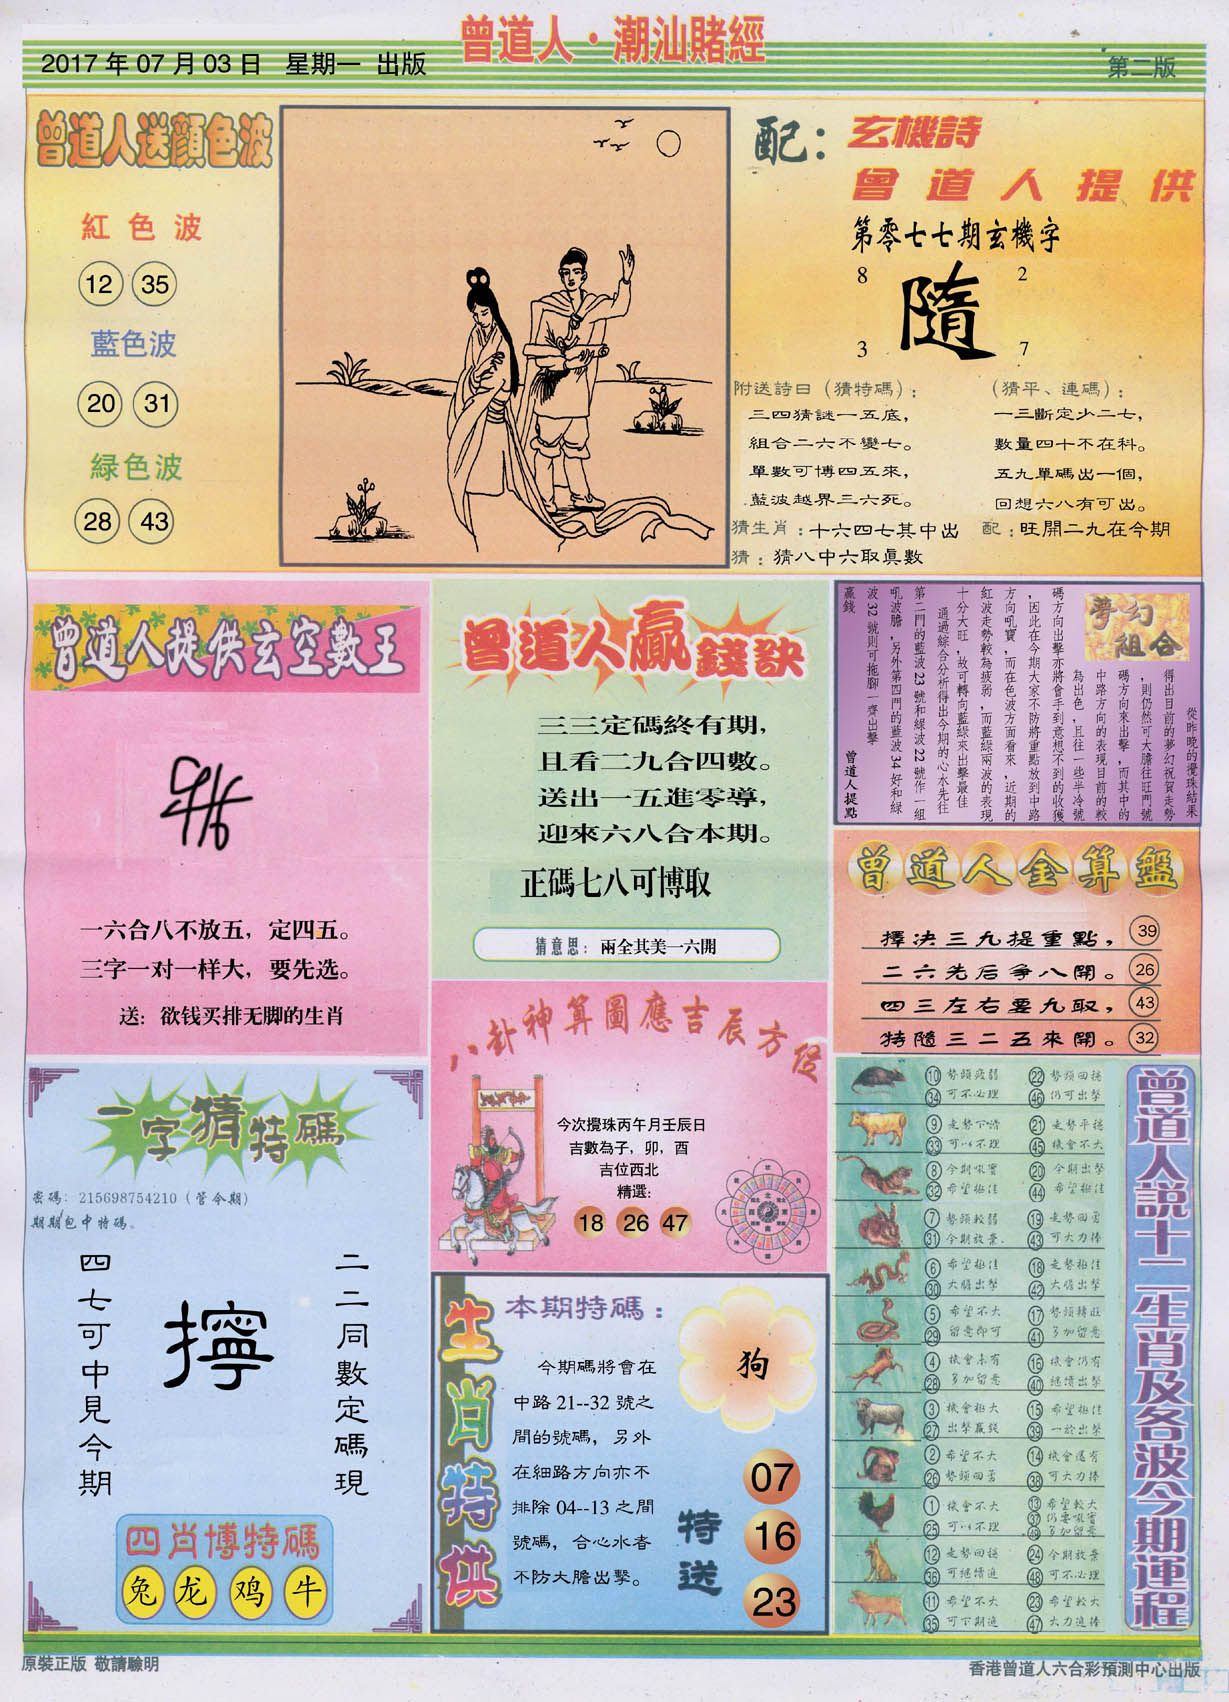 曾道人·潮汕賭經
2017年07月03日 星期一 出版
第二版
曾道人送顏色波
紅色波
12 35
藍色波
20 31
緑色波
28 43
配：玄機詩
曾道人提供
第零七七期玄機字
8 2
隨
3 7
附送詩日（猜特碼）：
三四猜謎一五底，
組合二六不變七。
單數可博四五來，
藍波越界三六死。
猜生肖：十六四七其中出
猜：猜八中六取眞數
（猜平、連碼）：
一三斷定少二七，
數量四十不在科。
五九單碼出一個，
回想六八有可出。
配：旺開二九在今期
曾道人提供玄空數王
一六合八不放五，定四五。
三字一对一样大，要先选。
送：欲钱买排无脚的生肖
曾道人贏錢訣
三三定碼終有期，
且看二九合四數。
送出一五進零導，
迎來六八合本期。
正碼七八可博取
猜意思：兩全其美一六開
夢幻組合
從昨晚的攪珠結果
得出目前的夢幻祝賀走勢
，則仍然可大膽往旺門號
碼方向來出擊，而其中的
中路方向的表現目前的較
為出色，且往一些半冷號
碼方向出擊亦將會手到意想不到的收獲
，因此在今期大家不防將重點放到中路
方向吼寶，而在色波方面看來，近期的
紅波走勢較為疲弱，而藍綠兩波的表現
十分大旺，故可轉向藍綠來出擊最佳
通過綜合分析得出今期的心水先往
第二門的藍波23號和綠波22號作一組
吼波膽，另外第四門的藍波34好和綠
波32號則可拖腳一齊出擊
贏錢
曾道人提點
曾道人金算盤
擇決三九提重點， 39
二六先后爭八開。 26
四三左右要九取， 43
特隨三二五來開。 32
一字猜特碼
密碼：215698754210（管今期）
期期包中特碼。
二二同數定碼現
擰
四七可中見今期
四肖博特碼
兔 龙 鸡 牛
八卦神算圖應吉辰方位
今次攪珠丙午月壬辰日
吉數為子，卯，酉
吉位西北
精選：
18 26 47
生肖特供
本期特碼：
今期碼將會在
中路21--32號之
間的號碼，另外
在細路方向亦不
排除04--13之間
號碼，合心水者
不防大膽出擊。
狗
特送
07
16
23
曾道人説十二生肖及各波今期運程
10 勢頭疲弱 22 勢頭回穩
34 可不必理 46 仍可出擊
9 走勢下滑 21 走勢平穩
33 可以不理 45 機會不大
8 今期吼寶 20 今期出擊
32 希望極佳 44 希望極佳
7 勢頭較弱 19 走勢回勇
31 今期放棄 43 可大力捧
6 希望極佳 18 走勢極佳
30 大膽出擊 42 大膽出擊
5 希望不大 17 勢頭轉旺
29 留意即可 41 多加留意
4 機會未有 16 機會仍有
28 多加留意 40 繼續出擊
3 機會極大 15 希望極佳
27 出擊贏錢 39 一於出擊
2 希望不大 14 機會還有
26 勢頭回勇 38 可大力捧
1 機會不大 13 希望較大
25 可以不理 37 仍要吼寶
49 多加留意
12 走勢回穩 24 今期放棄
36 可繼續追 48 可不必理
11 希望不大 23 希望較大
35 可下期追 47 大力追捧
原裝正版 敬請驗明
香港曾道人六合彩預測中心出版